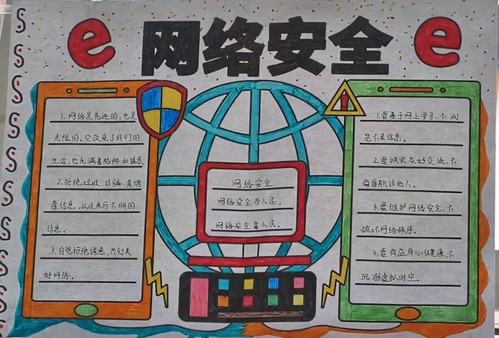 e 网络安全 e
1.网络是先进的,也是
危险的,它改变了我们的
生活,也充满着陷阱和诱惑
2.拒绝
信息。
3.自觉拒绝信息,共创美
好网络。
网络安全
网络安全为人民,
网络安全靠人民。
1.要善于网上学习,不浏
览不良信息。
2.要诚实友好交流,不
侮辱欺诈他人。
3.要维护网络安全,不
破坏网络秩序。
4.要有益身心健康,不
沉溺虚拟时空。